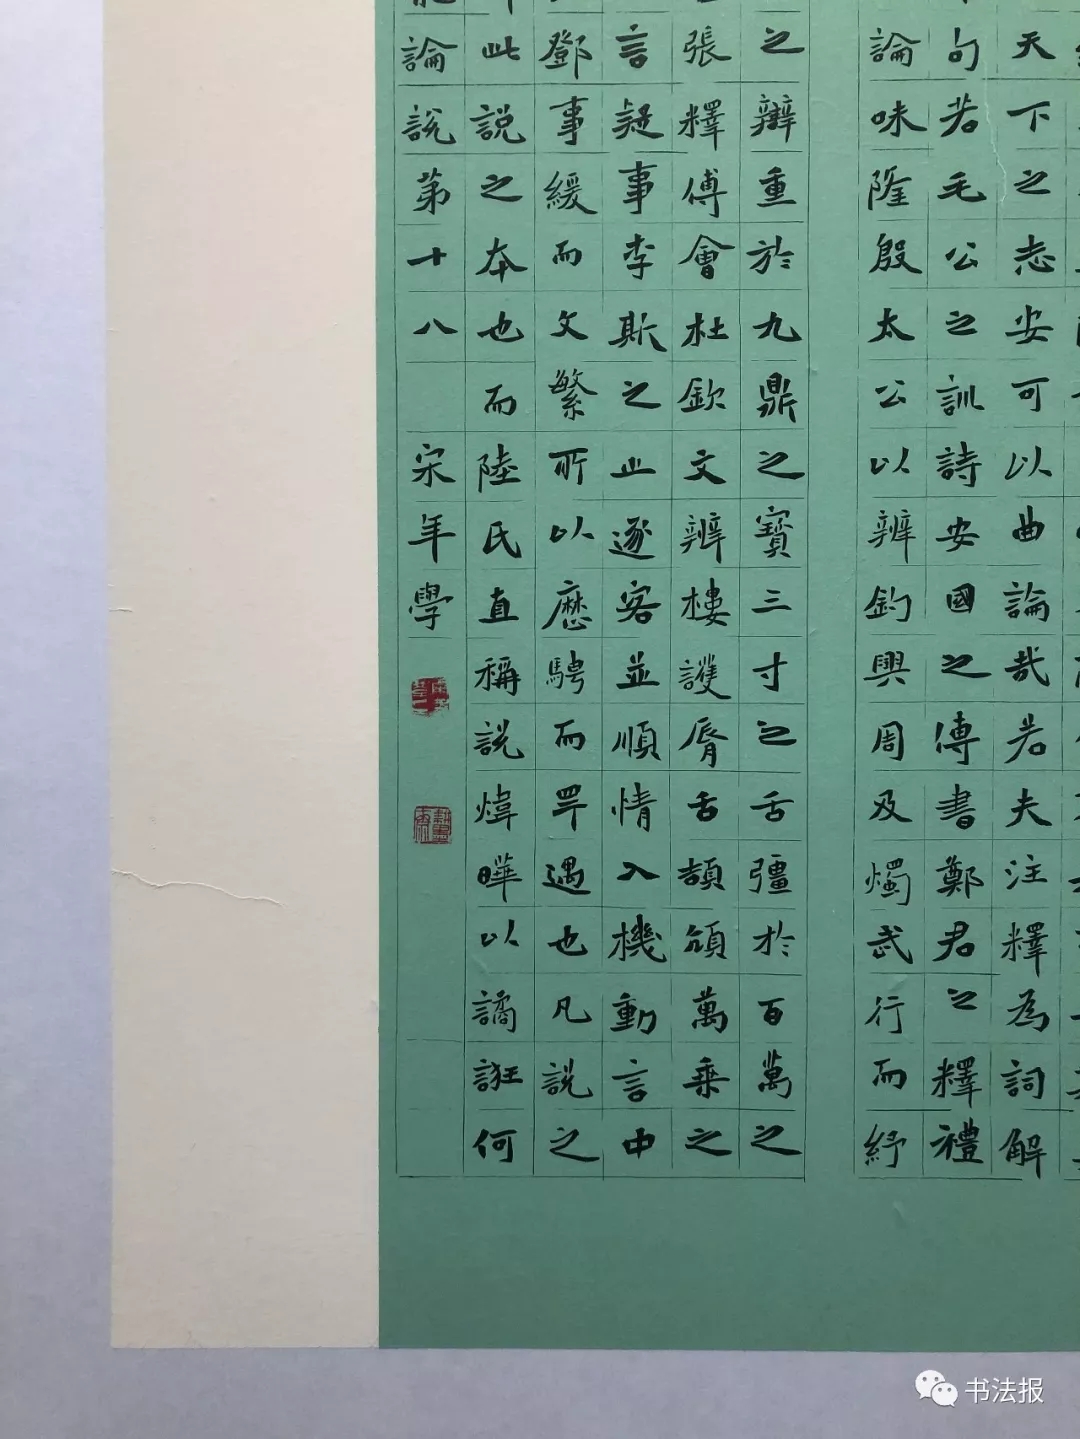 天下之志安可以曲論哉若夫注釋為詞解
句若毛公之訓詩安國之傳書鄭君之釋禮
論味隆殷太公以辨釣興周及燭武行而紓
之辯重於九鼎之寶三寸之舌彊於百萬之
張釋傅會杜欽文辨樓護脣舌頡頏萬乗之
言疑事李斯之止逐客並順情入機動言中
鄧事緩而文繁所以歷騁而罕遇也凡說之
此說之本也而陸氏直稱說煒曄以譎誑何
論說第十八 宋年學
书法报